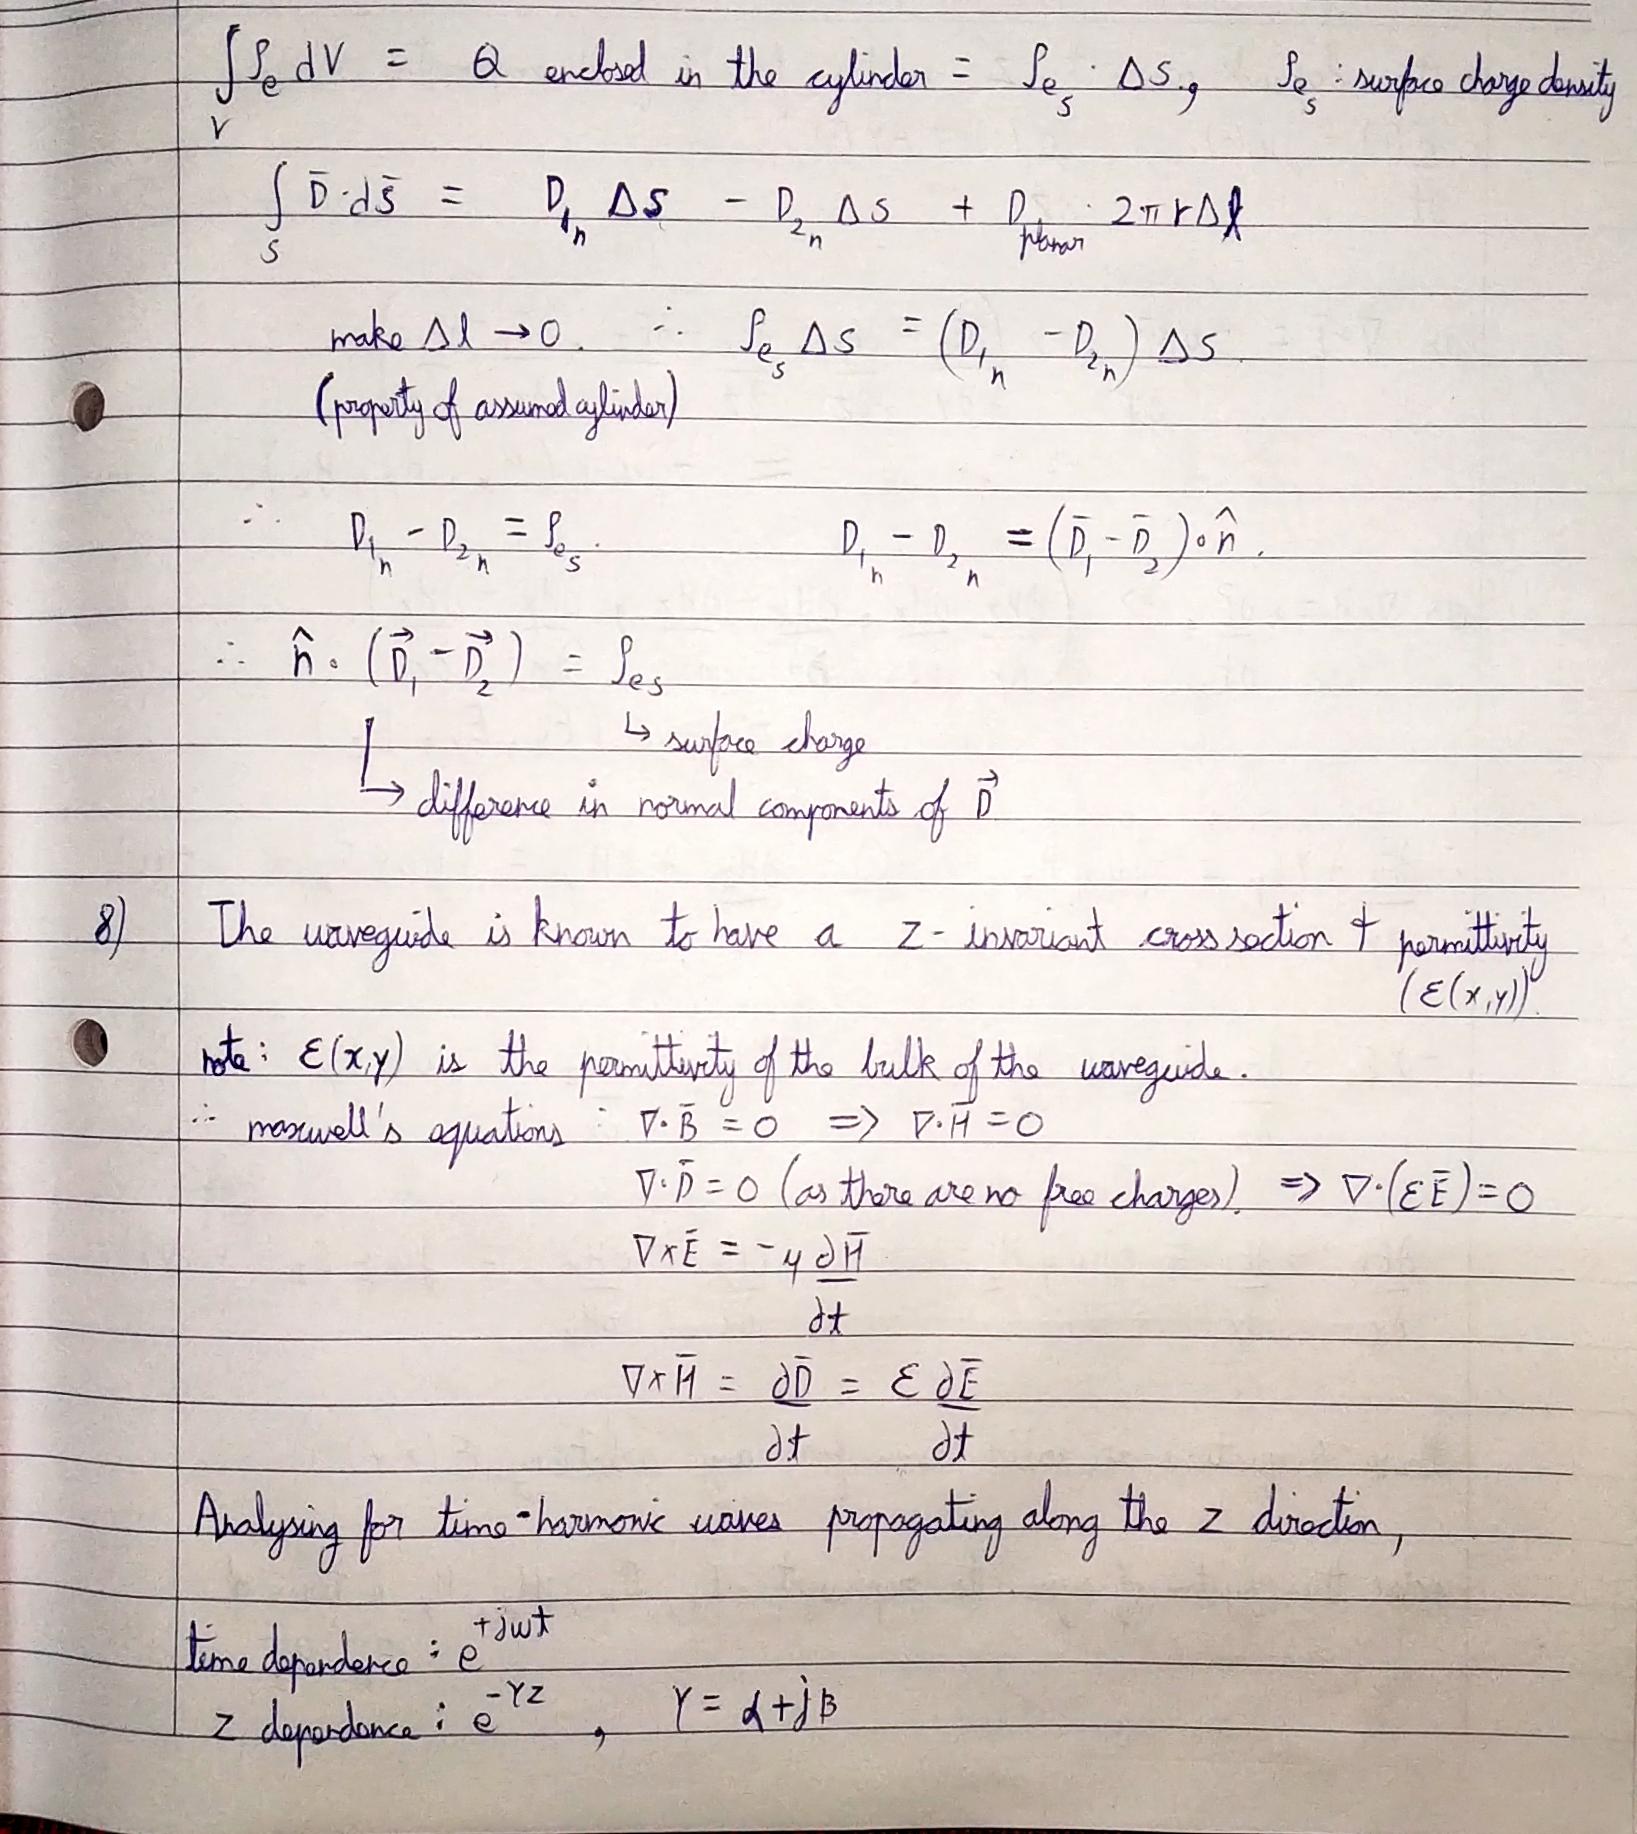 ∫_V ρ_e dV = Q enclosed in the cylinder = ρ_es · ΔS, ρ_es : surface charge density
∫_S D̄·ds̄ = D_1n ΔS - D_2n ΔS + D_planar · 2πrΔl
make Δl → 0. ∴ ρ_es ΔS = (D_1n - D_2n) ΔS.
(property of assumed cylinder)
∴ D_1n - D_2n = ρ_es. D_1n - D_2n = (D̄_1 - D̄_2)·n̂.
∴ n̂·(D⃗_1 - D⃗_2) = ρ_es
↳ surface charge
↳ difference in normal components of D⃗
8) The waveguide is known to have a z-invariant cross section & permittivity
(ε(x,y)).
note: ε(x,y) is the permittivity of the bulk of the waveguide.
∴ maxwell's equations : ∇·B̄ = 0 => ∇·H̄ = 0
∇·D̄ = 0 (as there are no free charges). => ∇·(εĒ) = 0
∇×Ē = -μ ∂H̄/∂t
∇×H̄ = ∂D̄/∂t = ε ∂Ē/∂t
Analysing for time-harmonic waves propagating along the z direction,
time dependence : e^{+jωt}
z dependance : e^{-γz}, γ = α + jβ